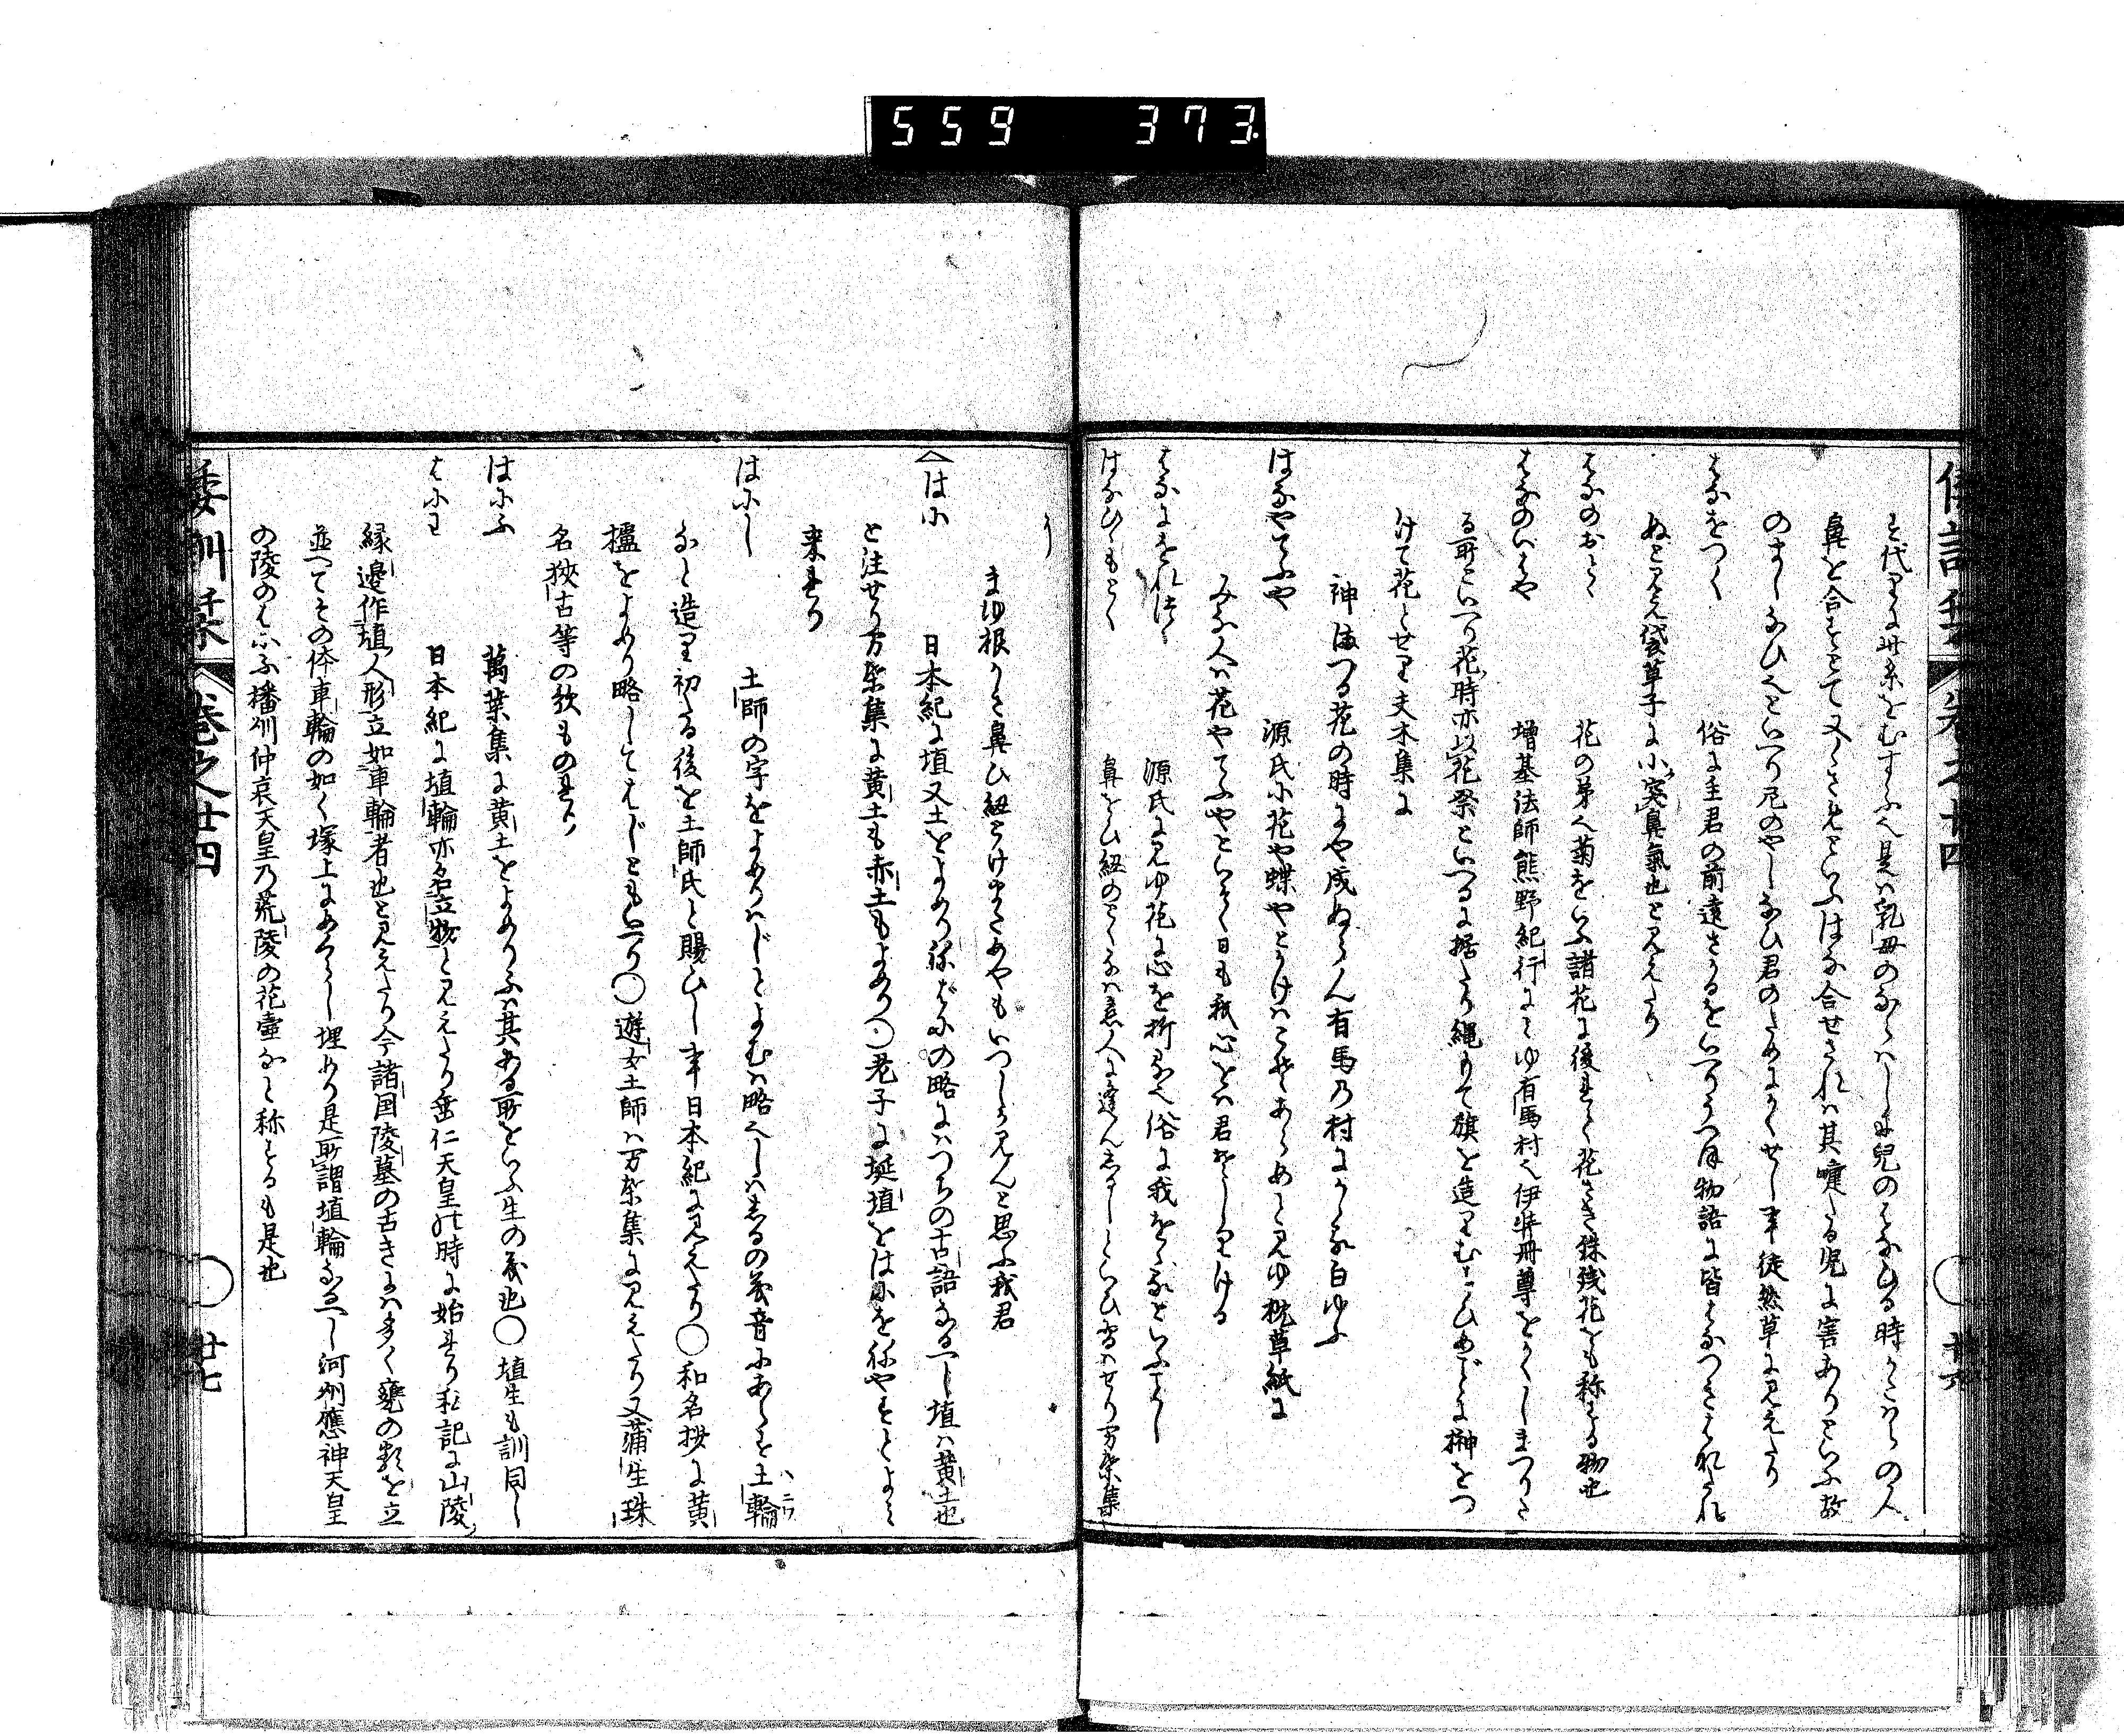 559 373
と代りに此糸をむすふへ是ハ乳母のならハしに兒のはなひる時かたハらの人
鼻を合すとて又くさめといふはな合せされハ其嚏たる児に害ありといふ故
のましなひへといへり尼のやしなひ君のためにかくせし事徒然草に見えたり
はなをつく 俗に主君の前遠さかるをいへりうつほ物語に皆はなつきはなたれ
ぬと見え袋草子に小突鼻氣也と見えたり
はなのおとゝ 花の弟へ菊をいふ諸花に後れて花さき殊残花とも称する物也
はなのいはや 増基法師熊野紀行に見ゆ有馬村へ伊弉冊尊をかくしまつりた
る所といへり花時亦以花祭といへるに据たり縄にて旗を造りむすひめごとに榊をつ
けて花とせり夫木集に
神まつる花の時にや成ぬらん有馬乃村にかゝる白ゆふ
はなやてふや 源氏に花や蝶やとかけハこそあらめと見ゆ枕草紙に
みな人ハ花やてふやといそく日も我心をハ君そしりける
はなにをれつゝ 源氏に見ゆ花に心を折るへ俗に我ををるといふことし
はなひひもとく 鼻をひ紐のとくるハ恋人に逢んしるしといひならハせり万葉集

まゆ根かき鼻ひ紐とけまてめやもいつしか見んと思ふ我君
はに 日本紀に埴又土をよめり祢ばにの略にハつちの古語なるへし埴ハ黄土也
と注せり万葉集に黄土も赤土もよめり〇老子に埏埴をはにを祢やすとよみ
来れり
はにし 土師の字をよめりハじとよむハ略へしハしるの義音にあらす土輪
ハニワ
なと造り初たる後を土師氏と賜ひし事日本紀に見えたり〇和名抄に黄
櫨をよめり略してはじともいへり〇遊女土師ハ万葉集に見えたり又蒲生珠
名狹古等の歌ものれり
はにふ 萬葉集に黄土をよめりふハ其ある所をいふ生の義也〇埴生も訓同し
はにわ 日本紀に埴輪亦名立物と見えたり垂仁天皇の時に始れり私記に山陵
縁邊作埴人形立如車輪者也と見えたり今諸国陵墓の古きにハ多く甕の類を立
並へてその体車輪の如く塚上にめくらし埋めり是所謂埴輪なるへし河州應神天皇
の陵のはにふ播州仲哀天皇乃荒陵の花壷なと称するも是也
倭訓栞 巻之廿四 廿七